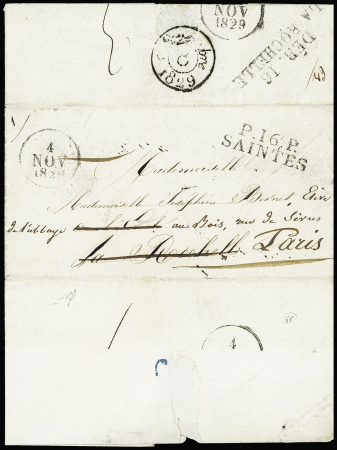 NOV
1829
DEB. 16
LA ROCHELLE
bre
1829
4
NOV
1829
P.16.P.
SAINTES
Mademoiselle
Mademoiselle Joséphine
de l'abbaye au Bois, rue de Sèvres
La Rochelle Paris
4